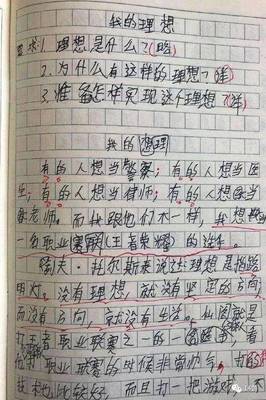 我的理想
要求:1.理想是什么?(略)
2.为什么有这样的理想?(详)
3.准备怎样实现这个理想?(详)
我的理想
有的人想当警察;有的人想当医
生;有的人想当律师;有的人想当
老师。而我跟他们不一样,我想
一名职业 (王者荣耀)的
列夫·托尔斯泰说过理想是指路
明灯。没有理想,就没有坚定的方向
而没有方向,就没有生活。
打王者职业联赛之一的
打职业联赛的时候非常帅气,
技术也比较好,而且打一把游戏